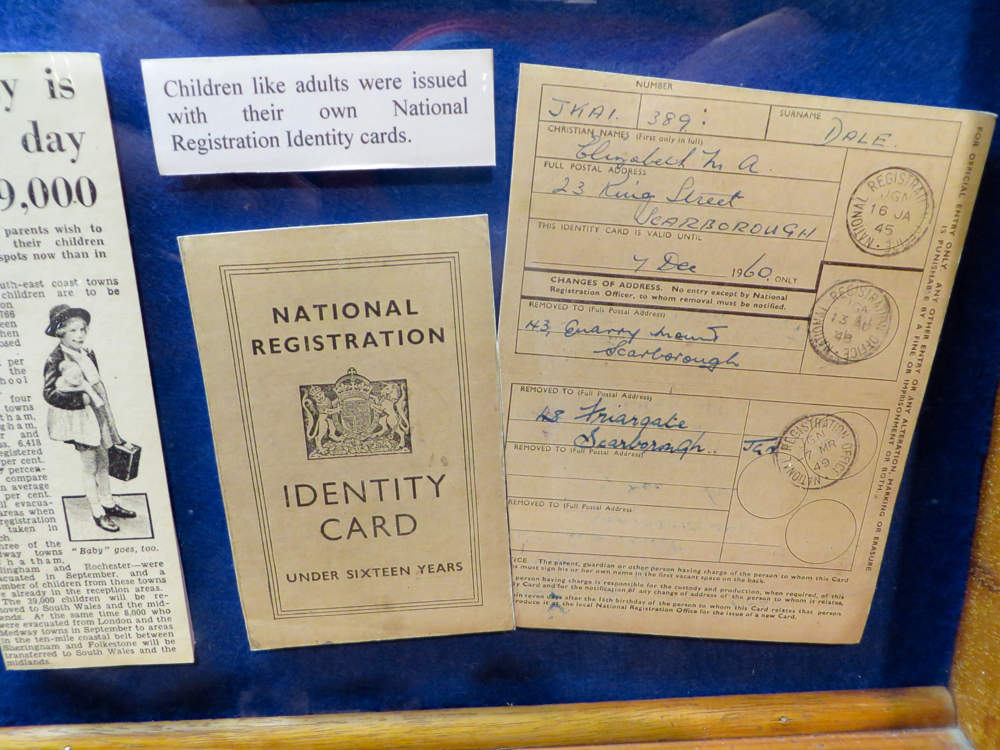 y is
day
9,000
parents wish to
their children
spots now than in
uth-east coast towns
children are to be
on
766
een
hen
osed
per
the
hool
four
towns
tham,
gham,
r and
s, 6,418
egistered
per cent.
percen-
compare
n average
per cent.
ll evacua-
areas when
registration
taken in
ch.
hree of the
dway towns
hatham,
llingham and Rochester—were
acuated in September, and a
umber of children from these towns
e already in the reception areas.
The 39,000 children will be re-
moved to South Wales and the mid-
ands. At the same time 8,000 who
were evacuated from London and the
Medway towns in September to areas
in the ten-mile coastal belt between
Sheringham and Folkestone will be
transferred to South Wales and the
midlands.
"Baby" goes, too.
Children like adults were issued
with their own National
Registration Identity cards.
NATIONAL
REGISTRATION
IDENTITY
CARD
UNDER SIXTEEN YEARS
NUMBER
SURNAME
JKA1. 389: DALE.
CHRISTIAN NAMES (First only in full)
Elizabeth M A.
FULL POSTAL ADDRESS
23 King Street
SCARBOROUGH
THIS IDENTITY CARD IS VALID UNTIL
7 Dec 1960. ONLY
CHANGES OF ADDRESS. No entry except by National
Registration Officer, to whom removal must be notified.
REMOVED TO (Full Postal Address)
43, Quarry Mount
Scarborough
REMOVED TO (Full Postal Address)
48 Friargate
Scarborough.
REMOVED TO (Full Postal Address)
REMOVED TO (Full Postal Address)
NATIONAL REGISTRATION
16 JA
45
NATIONAL REGISTRATION OFFICE
13
48
NATIONAL REGISTRATION OFFICE
7 MR
49
ICE.—The parent, guardian or other person having charge of the person to whom this Card
must sign his or her own name in the first vacant space on the back.
person having charge is responsible for the custody and production, when required, of this
y Card and for the notification of any change of address of the person to whom it relates.
in seven days after the 16th birthday of the person to whom this Card relates that person
produce it at the local National Registration Office for the issue of a new Card.
FOR OFFICIAL ENTRY ONLY. ANY OTHER ENTRY OR ANY ALTERATION, MARKING OR ERASURE
IS PUNISHABLE BY A FINE OR IMPRISONMENT OR BOTH.